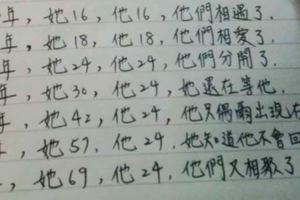 年，她16，他16，他們相遇了．
年，她18，他18，他們相愛了．
年，她24，他24，他們分開了．
年，她30，他24，她還在等他．
，她42，他24，他只偶爾出現在
，她57，他24．她知道他不會回
，她69，他24，他們又相聚了